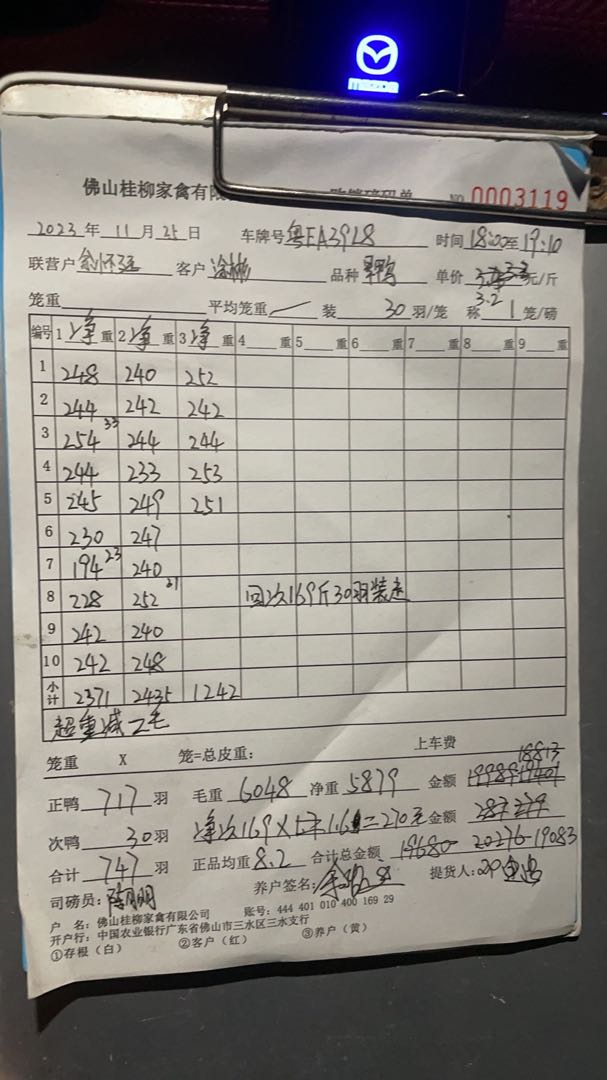 佛山桂柳家禽有限
NO 0003119
2023年11月25日 车牌号粤EA3918 时间18:00至19:10
联营户 客户 品种 单价 3.2 元/斤
笼重 平均笼重 装30羽/笼 称1笼/磅
编号 1净重 2净重 3净重 4重 5重 6重 7重 8重 9重
1 248 240 252
2 244 242 242
3 254 33 244 244
4 244 233 253
5 245 249 251
6 230 247
7 194 23 240
8 228 252 31 回次169斤30羽装走
9 242 240
10 242 248
小计 2371 2435 1242
超重减2毛
笼重 X 笼=总皮重: 上车费
18813
正鸭717羽 毛重6048 净重5879 金额
次鸭30羽 净次169X 1.6=270元 金额
合计747羽 正品均重8.2 合计总金额 19680 20276 19083
司磅员: 养户签名: 提货人:
户 名:佛山桂柳家禽有限公司 账号:444 401 010 400 169 29
开户行:中国农业银行广东省佛山市三水区三水支行
①存根(白) ②客户(红) ③养户(黄)